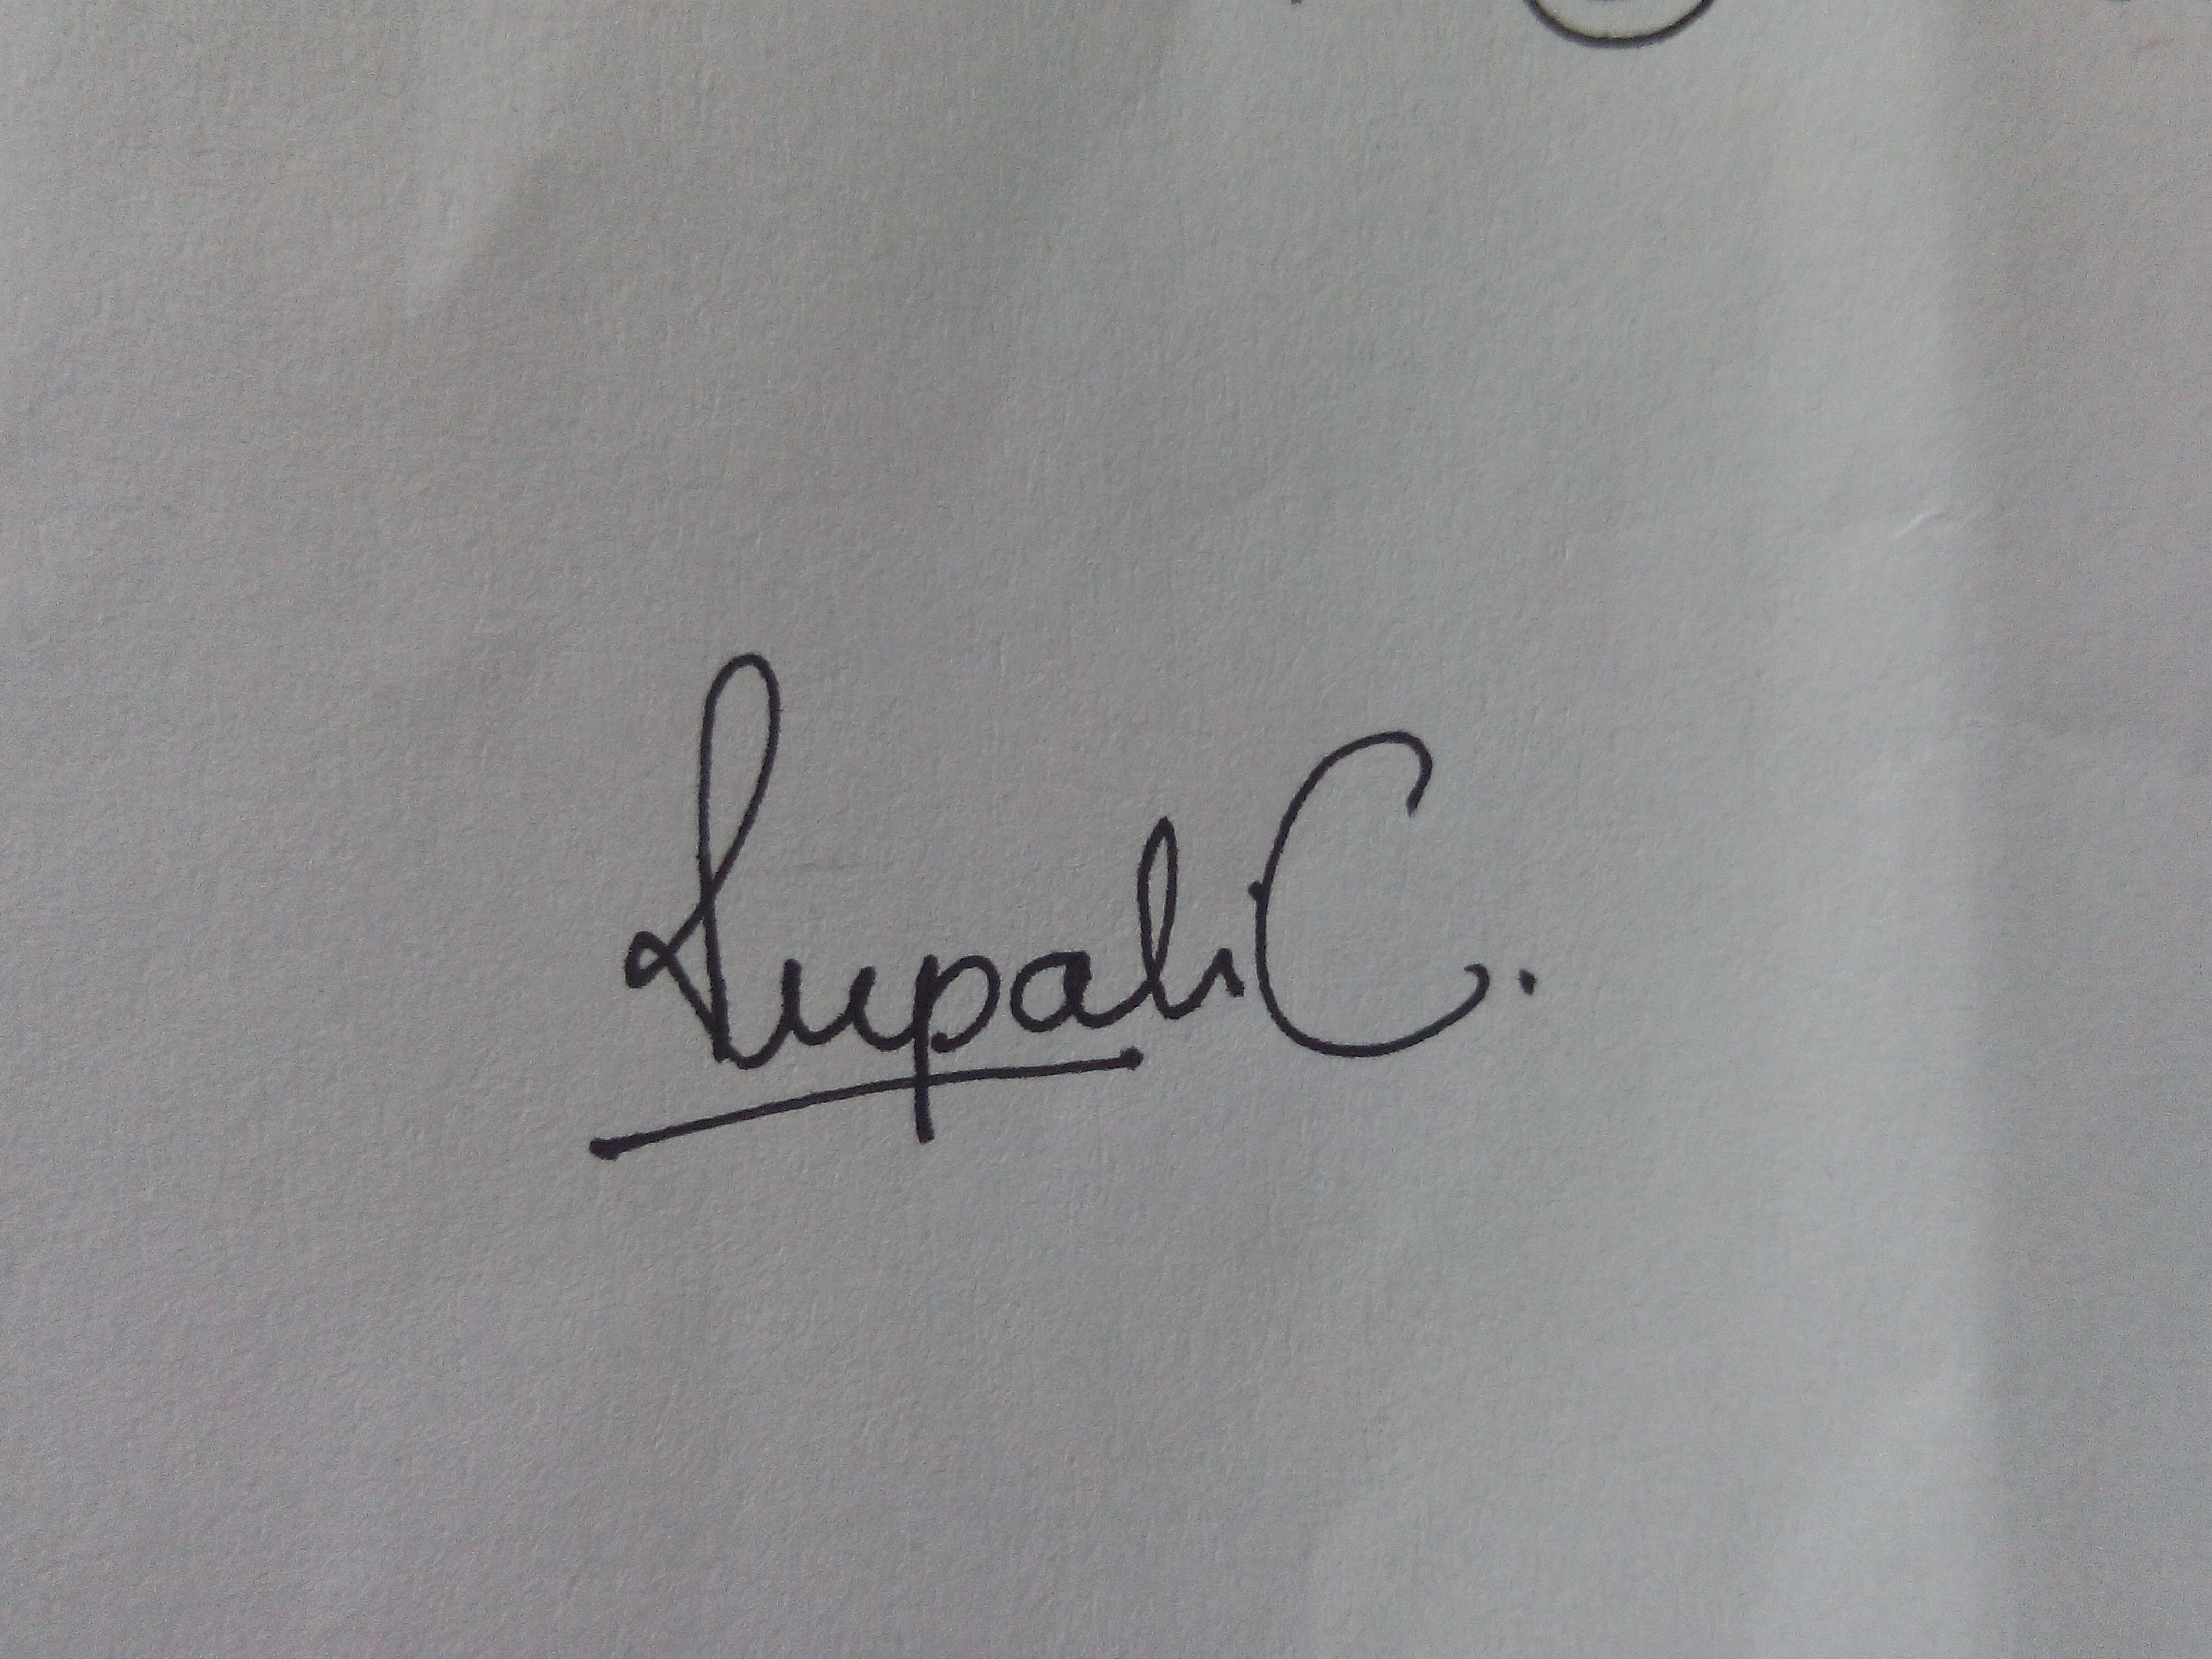 Rupali C.